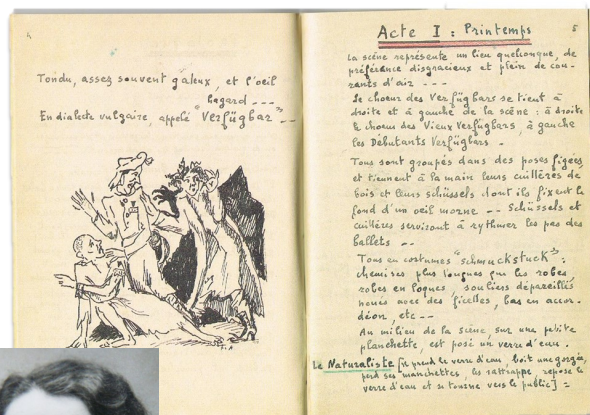 4
Tondu, assez souvent galeux, et l'oeil
hagard ---
En dialecte vulgaire, appelé "Verfügbar" --
5
Acte I : Printemps
La scène représente un lieu quelconque, de
préférence disgracieux et plein de cou-
rants d'air ---
Le choeur des Verfügbars se tient à
droite et à gauche de la scène : à droite
le choeur des Vieux Verfügbars, à gauche
les Débutants Verfügbars. -
Tous sont groupés dans des poses figées
et tiennent à la main leurs cuillères de
bois et leurs schüssels dont ils fixent le
fond d'un oeil morne -- Schüssels et
cuillères serviront à rythmer les pas des
ballets --
Tous en costumes "Schmuckstuck" :
chemises plus longues que les robes,
robes en loques, souliers dépareillés
noués avec des ficelles, bas en accor-
déon, etc --
Au milieu de la scène, sur une petite
planchette, est posé un verre d'eau.
Le Naturaliste [il prend le verre d'eau, boit une gorgée,
perd ses manchettes, les rattrappe, repose le
verre d'eau et se tourne vers le public] =